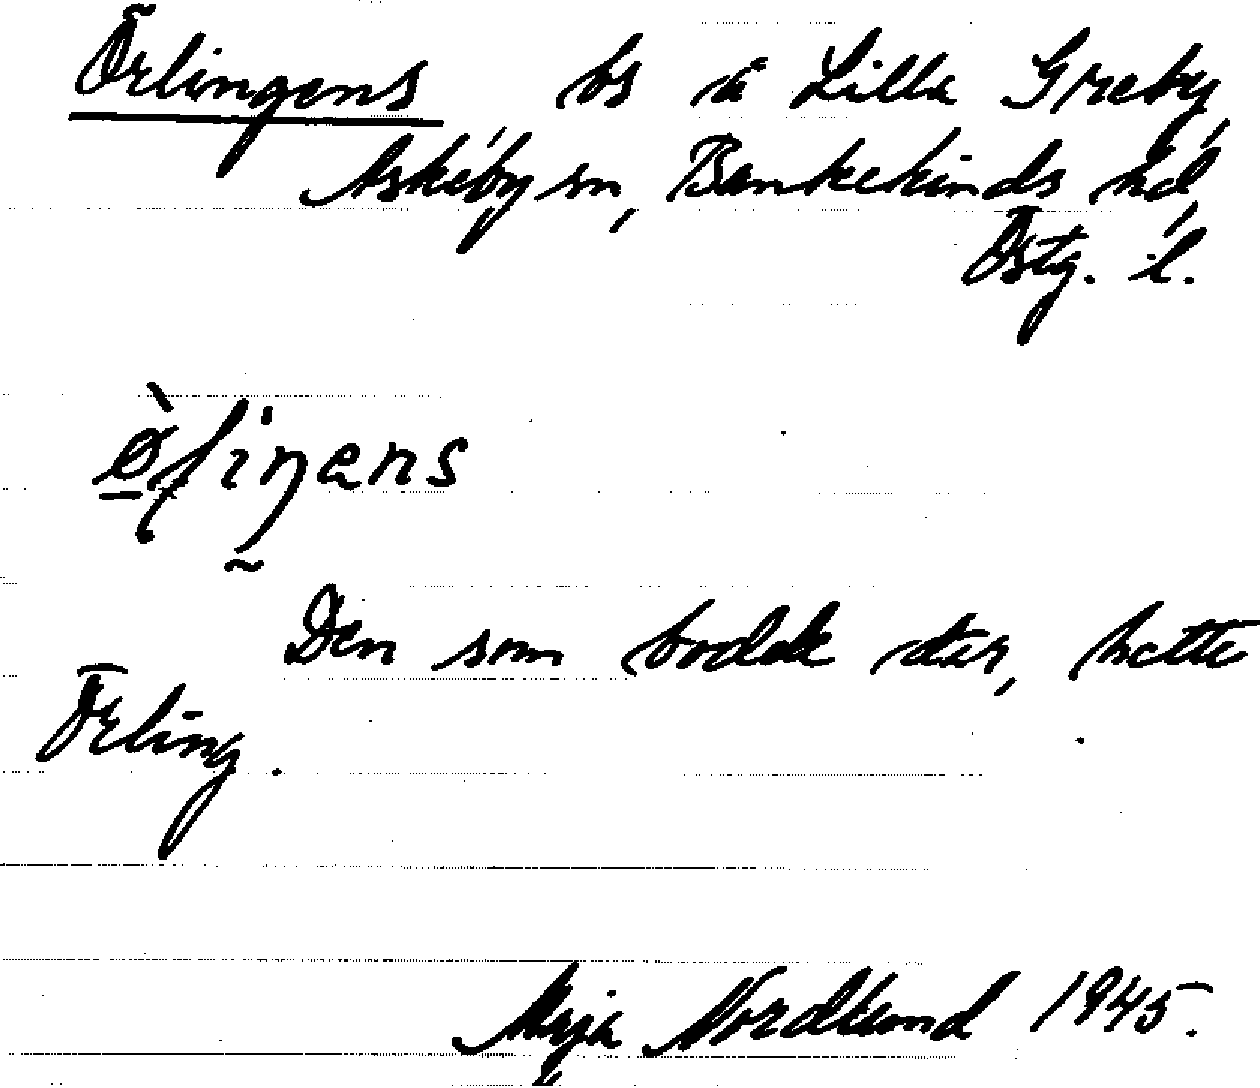 Örlingens bs å Lilla Greby,
Askeby sn, Bankekinds hd,
Östg. l.
Den som bodde där, hette
Örling.
Maja Nordlund 1945.